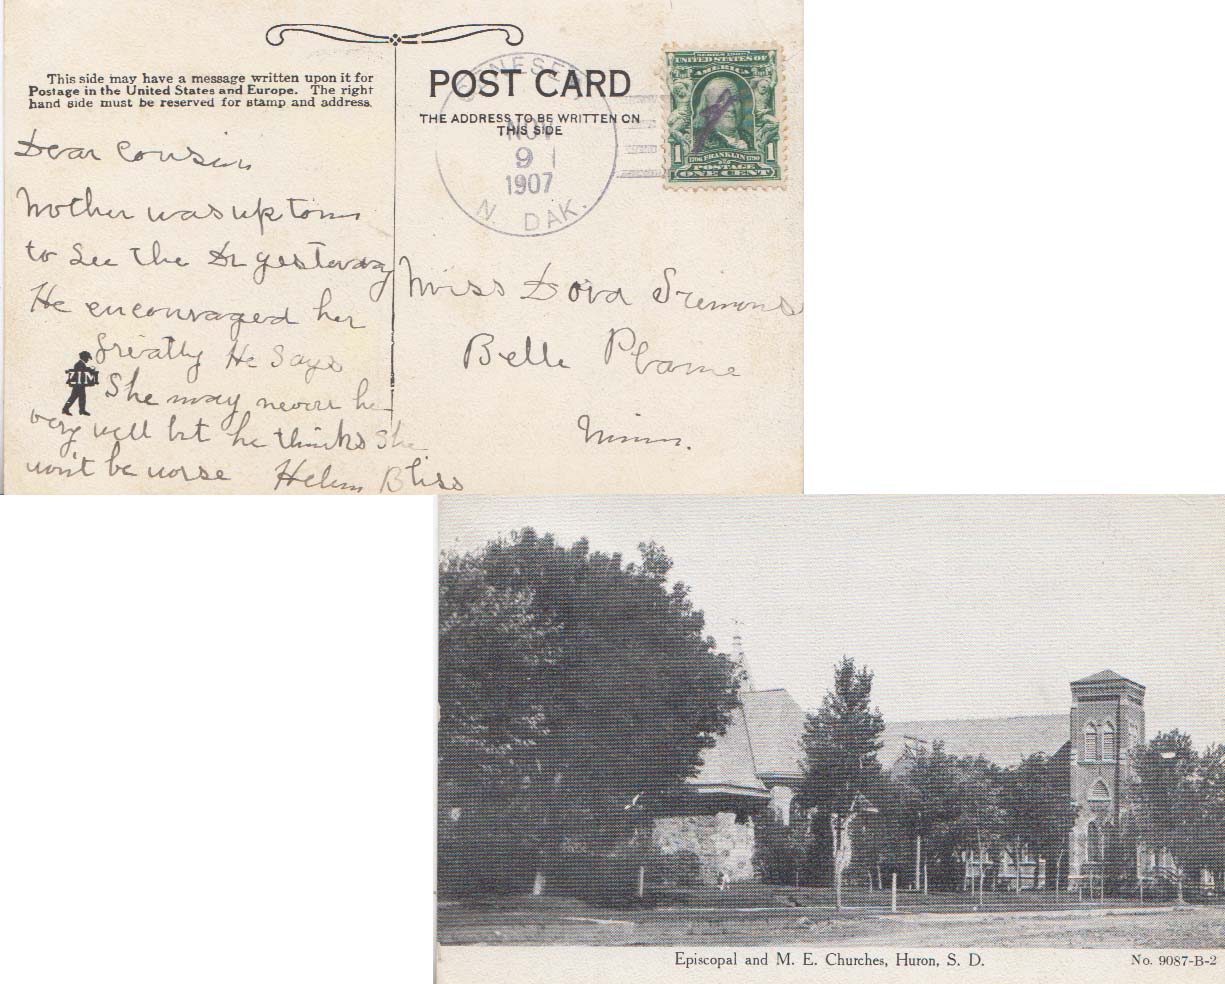 This side may have a message written upon it for
Postage in the United States and Europe. The right
hand side must be reserved for stamp and address.
POST CARD
THE ADDRESS TO BE WRITTEN ON
THIS SIDE
NOV
9
1907
N. DAK.
SERIES 1902
UNITED STATES OF
AMERICA
1 1706 FRANKLIN 1790 1
POSTAGE
ONE CENT
Dear Cousin
Mother was up town
to see the Dr yesterday
He encouraged her
greatly He says
ZIM
She may never be
very well but he thinks she
won't be worse Helen Bliss
Miss Dora
Belle Plaine
Minn.
Episcopal and M. E. Churches, Huron, S. D.
No. 9087-B-2